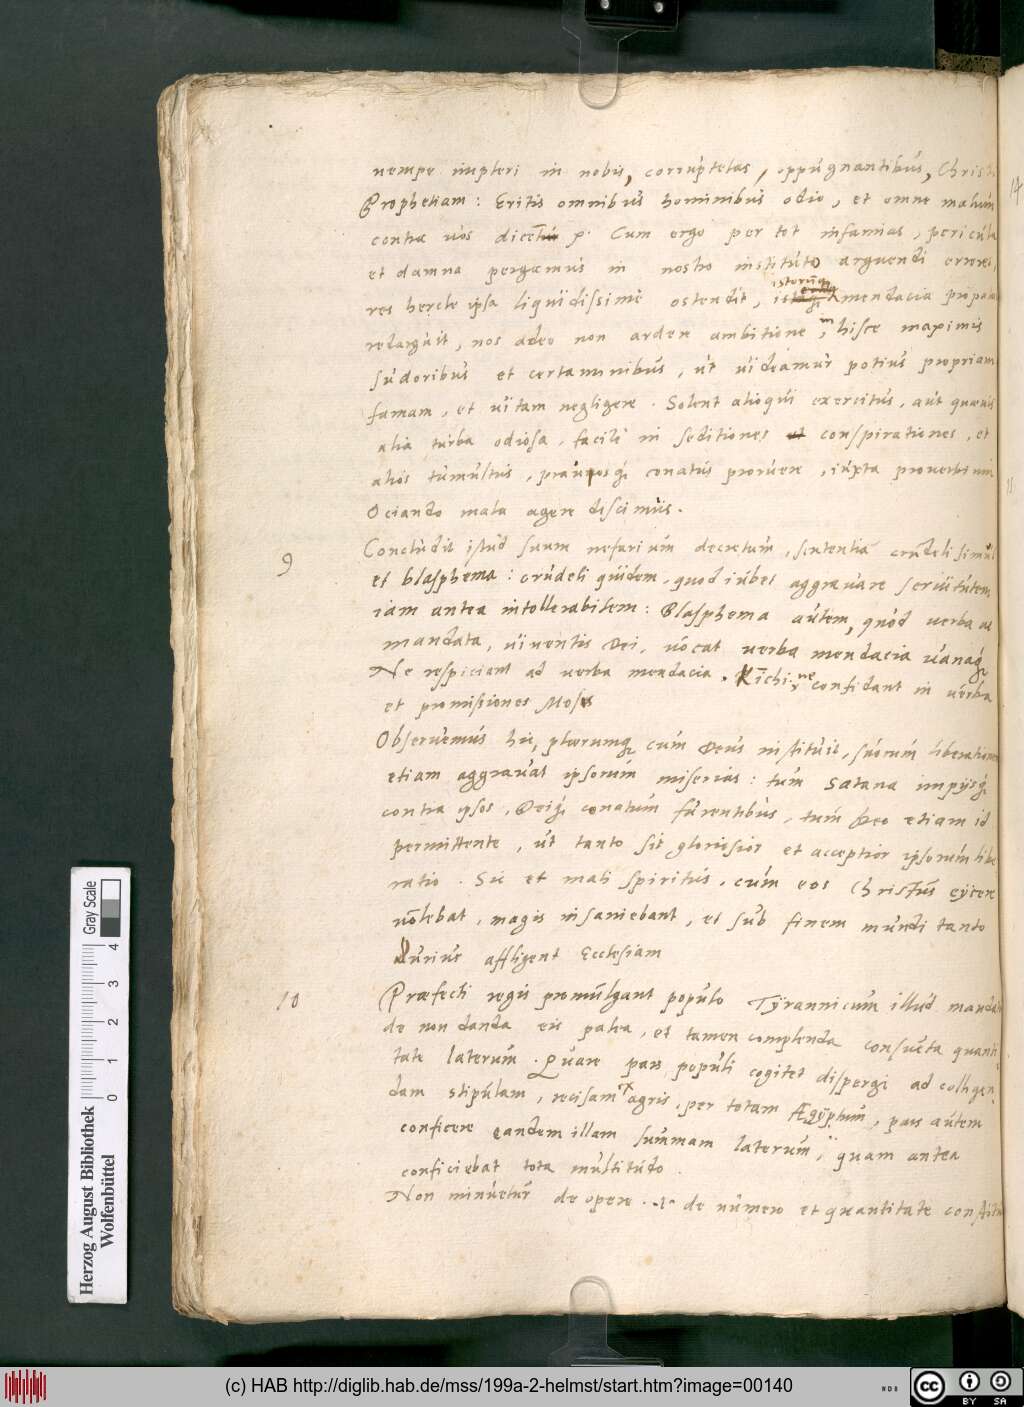 nempe impleri in nobis, corruptelas, oppugnantibus, Christi
Prophetiam: Eritis omnibus hominibus odio, et omne malum
contra vos Cum ergo per tot infamias, pericula
et damna pergamus in nostro instituto arguendi errores,
res hercle ipsa liquidissime ostendit, mendacia
redarguit, nos adeo non ardere ambitione, hisce maximis
sudoribus et certaminibus, ut uideamur potius propriam
famam, et uitam negligere. Solent alioqui exercitus, aut quaeuis
alia turba odiosa, facile in seditiones conspirationes, et
alios tumultus, prauosq; conatus proruere, iuxta
Ociando mala agere discimus.
9
Concludit istud suum nefarium decretum, sententia crudelissima
et blasphema: crudeli quidem, quod iubet aggrauare seruitutem
iam antea intollerabilem: Blasphema autem, quod verba ac
mandata, uiuentis Dei, uocat verba mendacia vanaq;
Ne respiciant ad verba mendacia. ne confidant in verba
et promissiones Mosis
Obseruemus hic, plerumq; cum Deus instituit, suorum liberationem
etiam aggrauat ipsorum miserias: tum Satana impijsq;
contra ipsos, Deiq; conatum furentibus, tum Deo etiam id
permittente, ut tanto sit gloriosior et acceptior ipsorum libe
ratio. Sic et mali spiritus, cum eos Christus eijcere
uolebat, magis insaniebant, et sub finem mundi tanto
durius affligent Ecclesiam
10
Praefecti regis promulgant populo Tyrannicum illud mandatum
de non danda eis palea, et tamen complenda consueta quanti
tate laterum. Quare pars populi cogitet dispergi ad colligen
dam stipulam, recisam ex agris, per totam Ægyptum, pars autem
conficere eandem illam summam laterum, quam antea
conficiebat tota multitudo.
Non minuetur de opere. de numero et quantitate
Gray Scale
0 1 2 3 4
Herzog August Bibliothek
Wolfenbüttel
(c) HAB http://diglib.hab.de/mss/199a-2-helmst/start.htm?image=00140
NDB
cc BY SA